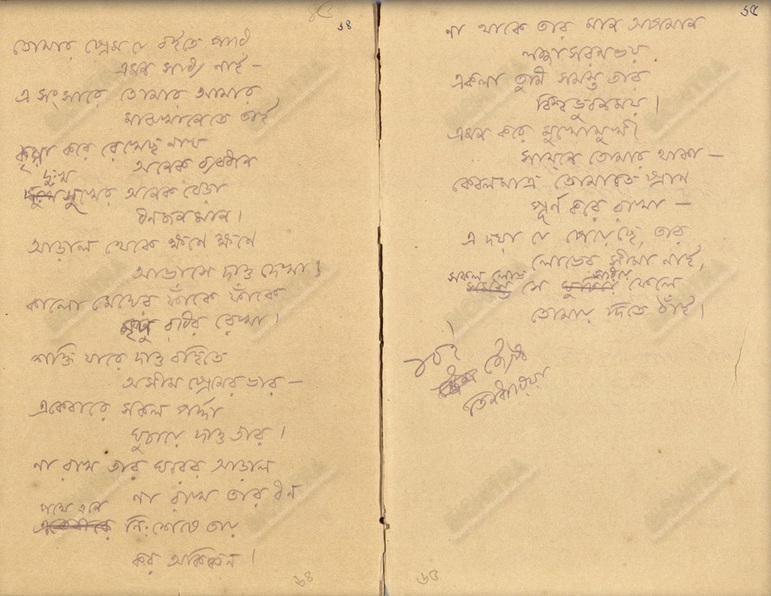 ৬৪
তোমার প্রেম যে বইতে পারি
এমন সাধ্য নাই –
এ সংসারে তোমার আমার
মাঝখানেতে তাই
কৃপা করে রেখেছ নাথ
অনেক ব্যবধান
দুঃখ
সুখের অনেক বেড়া
ধনজনমান।
আড়াল থেকে ক্ষণে ক্ষণে
আভাসে দাও দেখা।
কালো মেঘের ফাঁকে ফাঁকে
মৃদু রবির রেখা।
শক্তি যারে দাও বহিতে
অসীম প্রেমের ভার –
একেবারে সকল পর্দা
ঘুচায়ে দাও তার।
না রাখ তার ঘরের আড়াল
না রাখ তার ধন
পথে এনে
নিঃশেষে তায়
কর অকিঞ্চন।
৬৪
৬৫
না থাকে তার মান অপমান
লজ্জা সরম ভয়
একলা তুমি সমস্ত তার
বিশ্বভুবনময়।
এমন করে মুখোমুখী
সামনে তোমার থাকা –
কেবলমাত্র তোমাতে প্রাণ
পূর্ণ করে রাখা –
এ দয়া যে পেয়েছে, তার
লোভের সীমা নাই,
সকল লোভ
সে সরিয়ে ফেলে
তোমায় দিতে ঠাঁই।
১০ই পৌষ
তিনধরিয়া
৬৫
BICHITRA